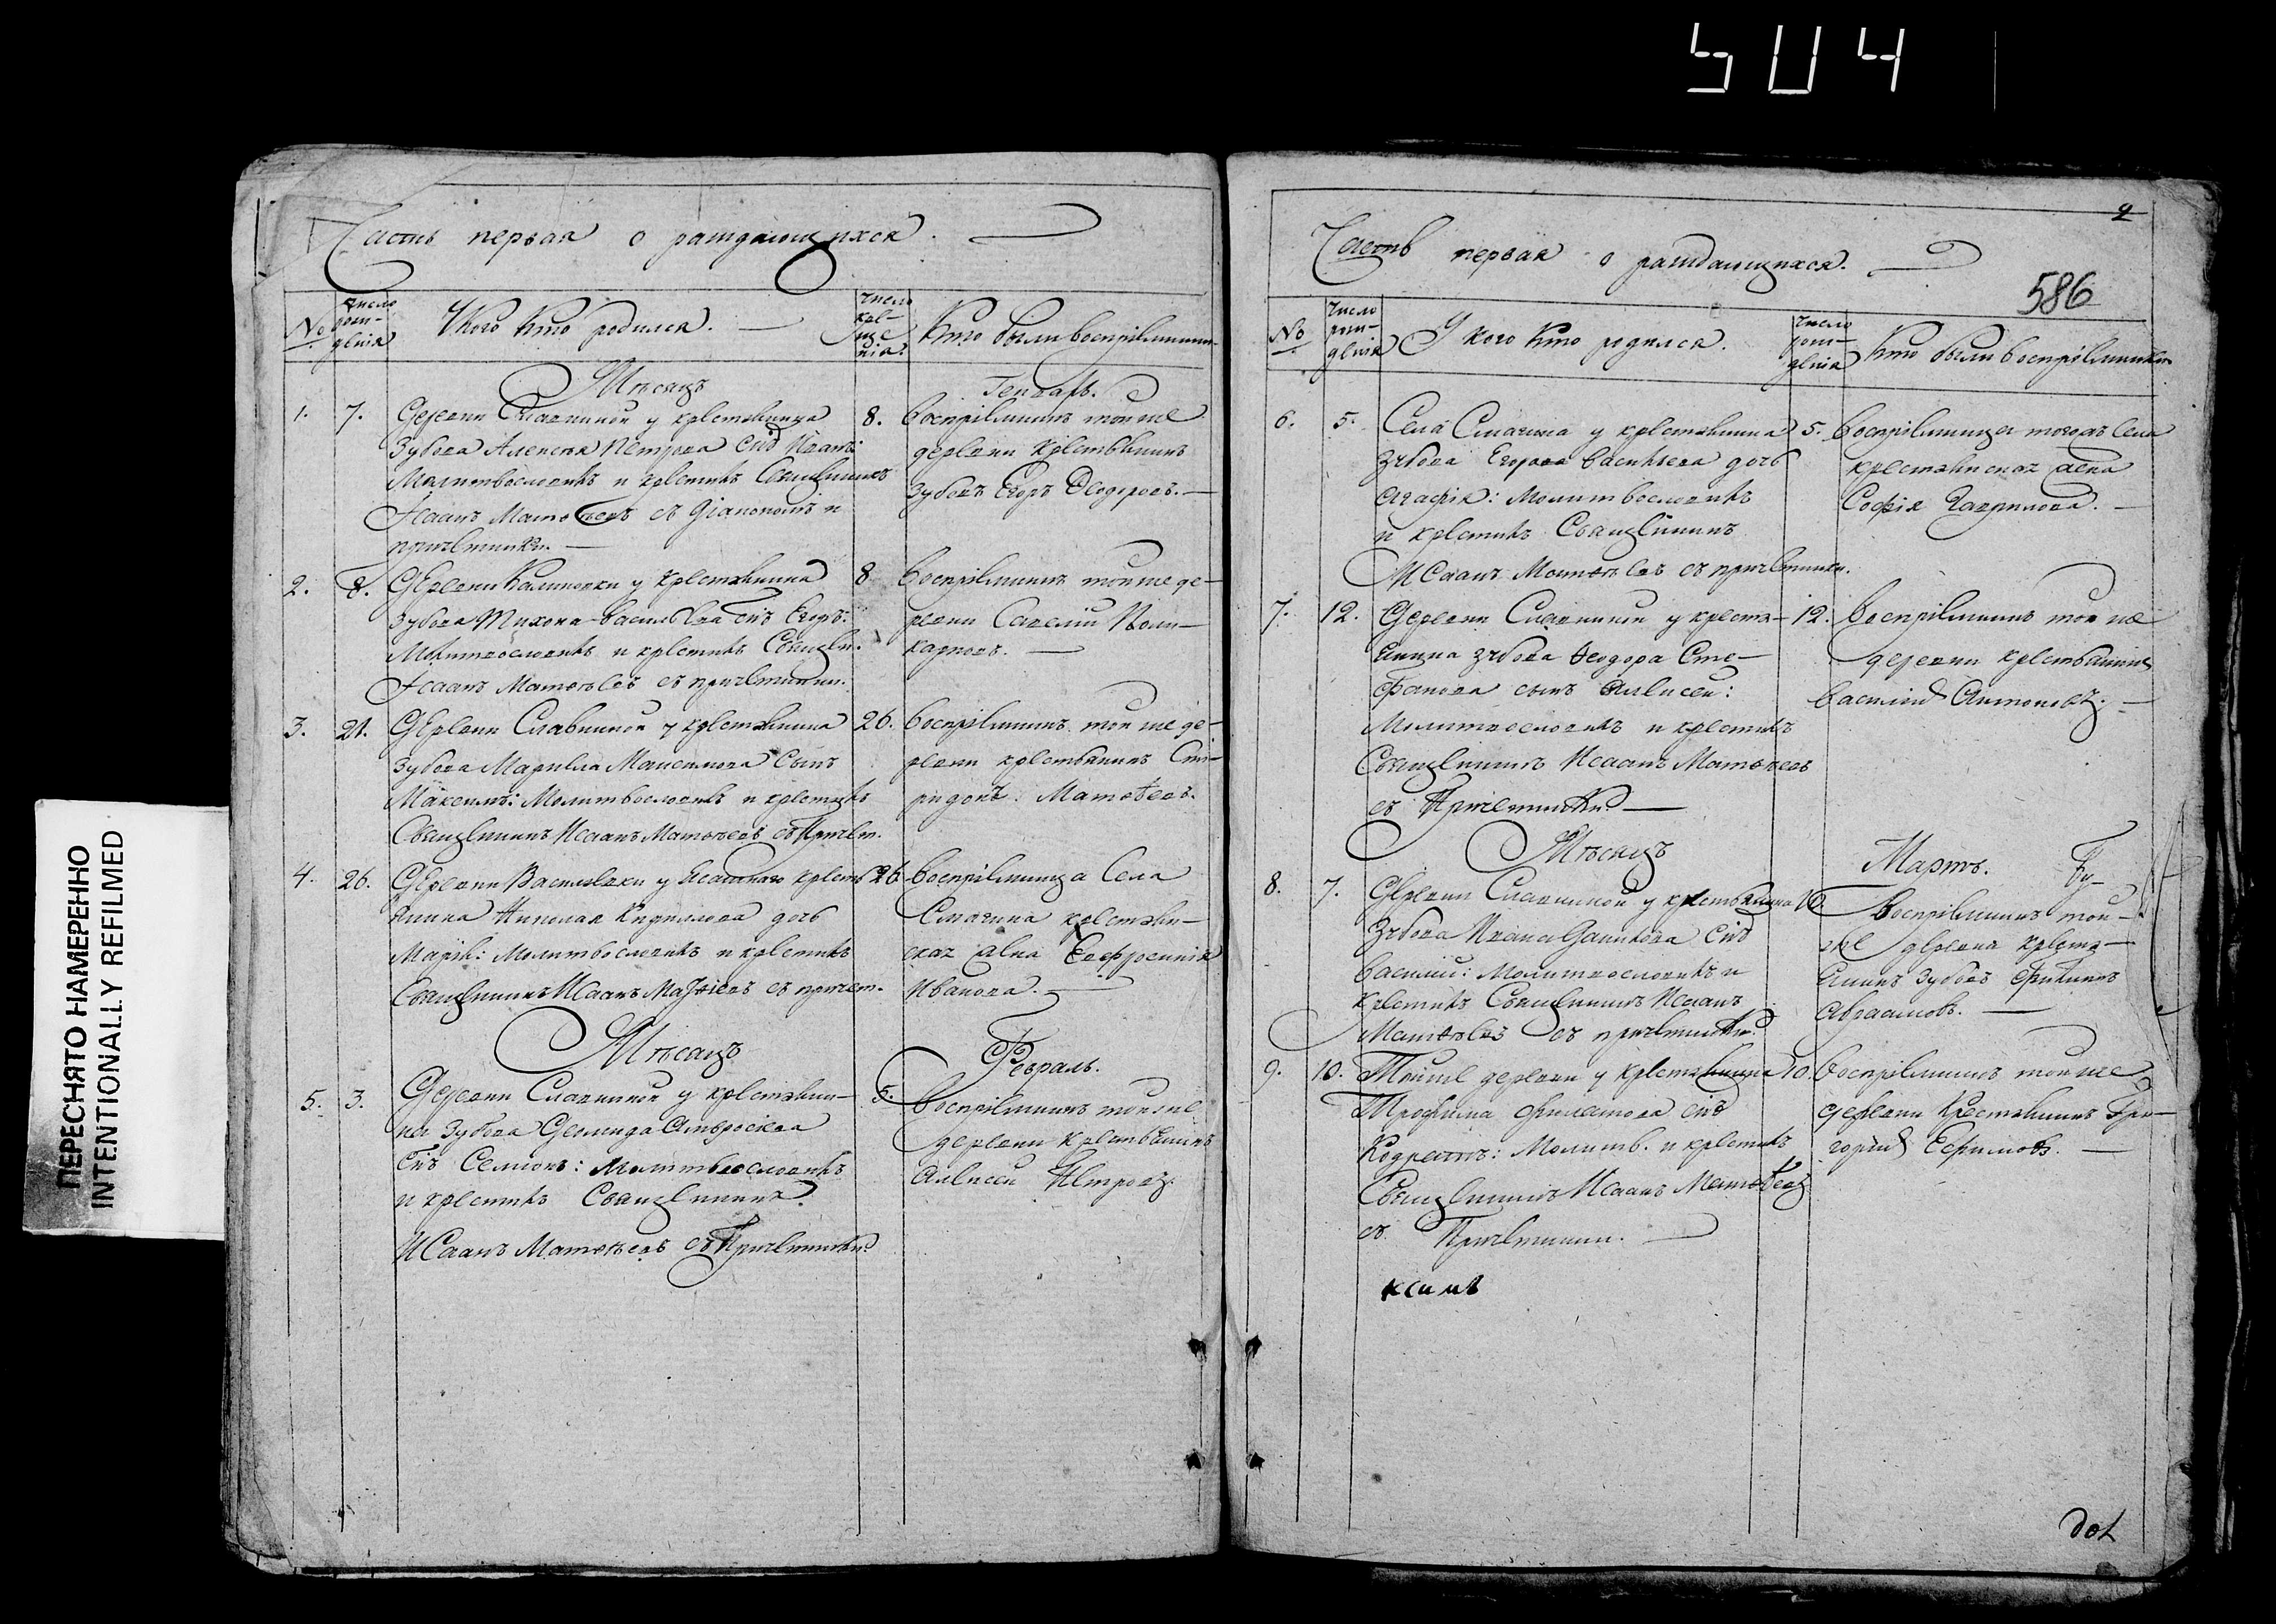 504
ПЕРЕСНЯТО НАМЕРЕННО
INTENTIONALLY REFILMED
Часть первая о раждающихся.
№
число рож-дения
У кого кто родился.
число кре-ще-ния.
Кто были воспріемники
Мѣсяцъ Генварь.
1. 7. Деревни Славкиной у крестьянина 8.
Зубова Алексѣя Петрова снъ Иванъ:
Молитвословилъ и крестилъ Священникъ
Исаакъ Матѳѣевъ съ Діакономъ и
причетники.
Воспріемникъ той же
деревни крестьянинъ
Зубовъ Егоръ Ѳеодоровъ.
2. 8. Деревни Калиновки у крестьянина 8
Зубова Тихона Васильева снъ Егоръ:
Молитвословилъ и крестилъ Священ.
Исаакъ Матѳѣевъ съ причетники.
Воспріемникъ той же де-
ревни Савелій Поли-
карповъ.
3. 21. Деревни Славкиной у крестьянина 26.
Зубова Марка Максимова сынъ
Максимъ: Молитвословилъ и крестилъ
Священникъ Исаакъ Матѳѣевъ съ Причет.
Воспріемникъ той же де-
ревни крестьянинъ Спи-
ридонъ Матвѣевъ.
4. 26. Деревни Васильевки у крест 26
янина Николая Кирилова дочь
Марія: Молитвословилъ и крестилъ
Священникъ Исаакъ Матѳіевъ съ причет.
Воспріемница Села
Смагина крестьян-
ская жена Евфросинія
Иванова.
Мѣсяцъ Февраль.
5. 3. Деревни Славкиной у крестьяни- 5.
на Зубова Амвросіева
снъ Семіонъ: Молитвословилъ
и крестилъ Священникъ
Исаакъ Матѳѣевъ съ Причетники
Воспріемникъ той же
деревни крестьянинъ
Алексей Петровъ.
2
586
Часть первая о раждающихся.
№
число рож-дения
У кого кто родился.
число рож-дения
Кто были воспріемники
6. 5. Села Смагина у крестьянина 5.
Зубова Егора Васильева дочь
Агафія: Молитвословилъ
и крестилъ Священникъ
Исаакъ Матѳѣевъ съ причетники.
Воспріемница тогожъ Села
крестьянская жена
Софія Гаврилова.
7. 12. Деревни Славкиной у кресть- 12.
янина Зубова Ѳеодора Сте-
фанова сынъ Алексей:
Молитвословилъ и крестилъ
Священникъ Исаакъ Матѳѣевъ
съ Причетники
Воспріемникъ той же
деревни крестьянинъ
Василій Антоновъ.
Мѣсяцъ Мартъ.
8. 7. Деревни Славкиной у крестьянина 10.
Зубова Ивана Данилова снъ
Василій: Молитвословилъ и
крестилъ Священникъ Исаакъ
Матѳѣевъ съ причетники.
Воспріемникъ той-
же деревни кресть-
янинъ Зубовъ
Авраамовъ.
9. 10. Тойже деревни у крестьянина 10.
Трофима Филатова снъ
Кодратъ: Молитв. и крестилъ
Священникъ Исаакъ Матѳѣевъ
съ Причетники.
Воспріемникъ той же
деревни Крестьянинъ Гри-
горій Ефимовъ.
ксимъ